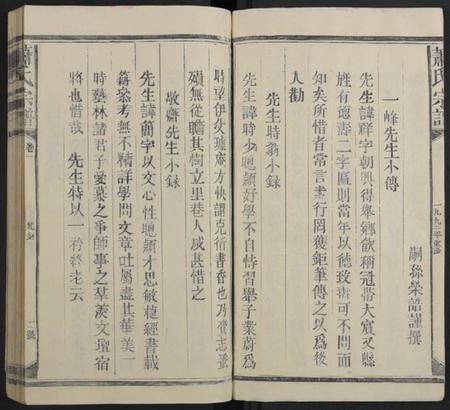 蕭氏宗譜
一九九三年重修
一峰先生小傳
嗣孫榮諧謹撰
先生諱祥字朝興得舉鄉飲稱冠帶大賓又縣
旌有德壽二字匾則當年以德政壽可不問而
知矣所惜者當言業行罔獲鉅筆傳之以為後
人勸
先生時翁小錄
先生諱時少聰穎好學不自恃習舉子業蔚為
時望伊攸據庵方快謂克衍書香也乃賫志蚤
殞無從瞻其樹立里巷人咸甚惜之
敬齋先生小錄
先生諱蘭字以文心性聰穎才思敏蓰經書載
籍宏考無不精詳學問文章吐屬盡其華美一
時藝林諸君子愛慕之爭師事之羣羨文壇宿
將也惜哉 先生特以一衿終老云
蕭氏宗譜
卷一
紀錄
二號